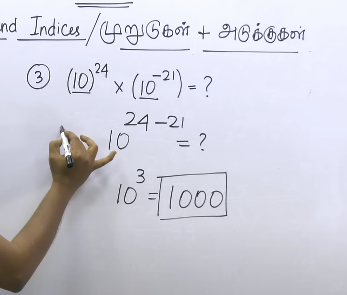 nd Indices / முறுடுகள் + அடுக்குகள்
③ (10)²⁴ × (10⁻²¹) = ?
10²⁴⁻²¹ = ?
10³ = 1000